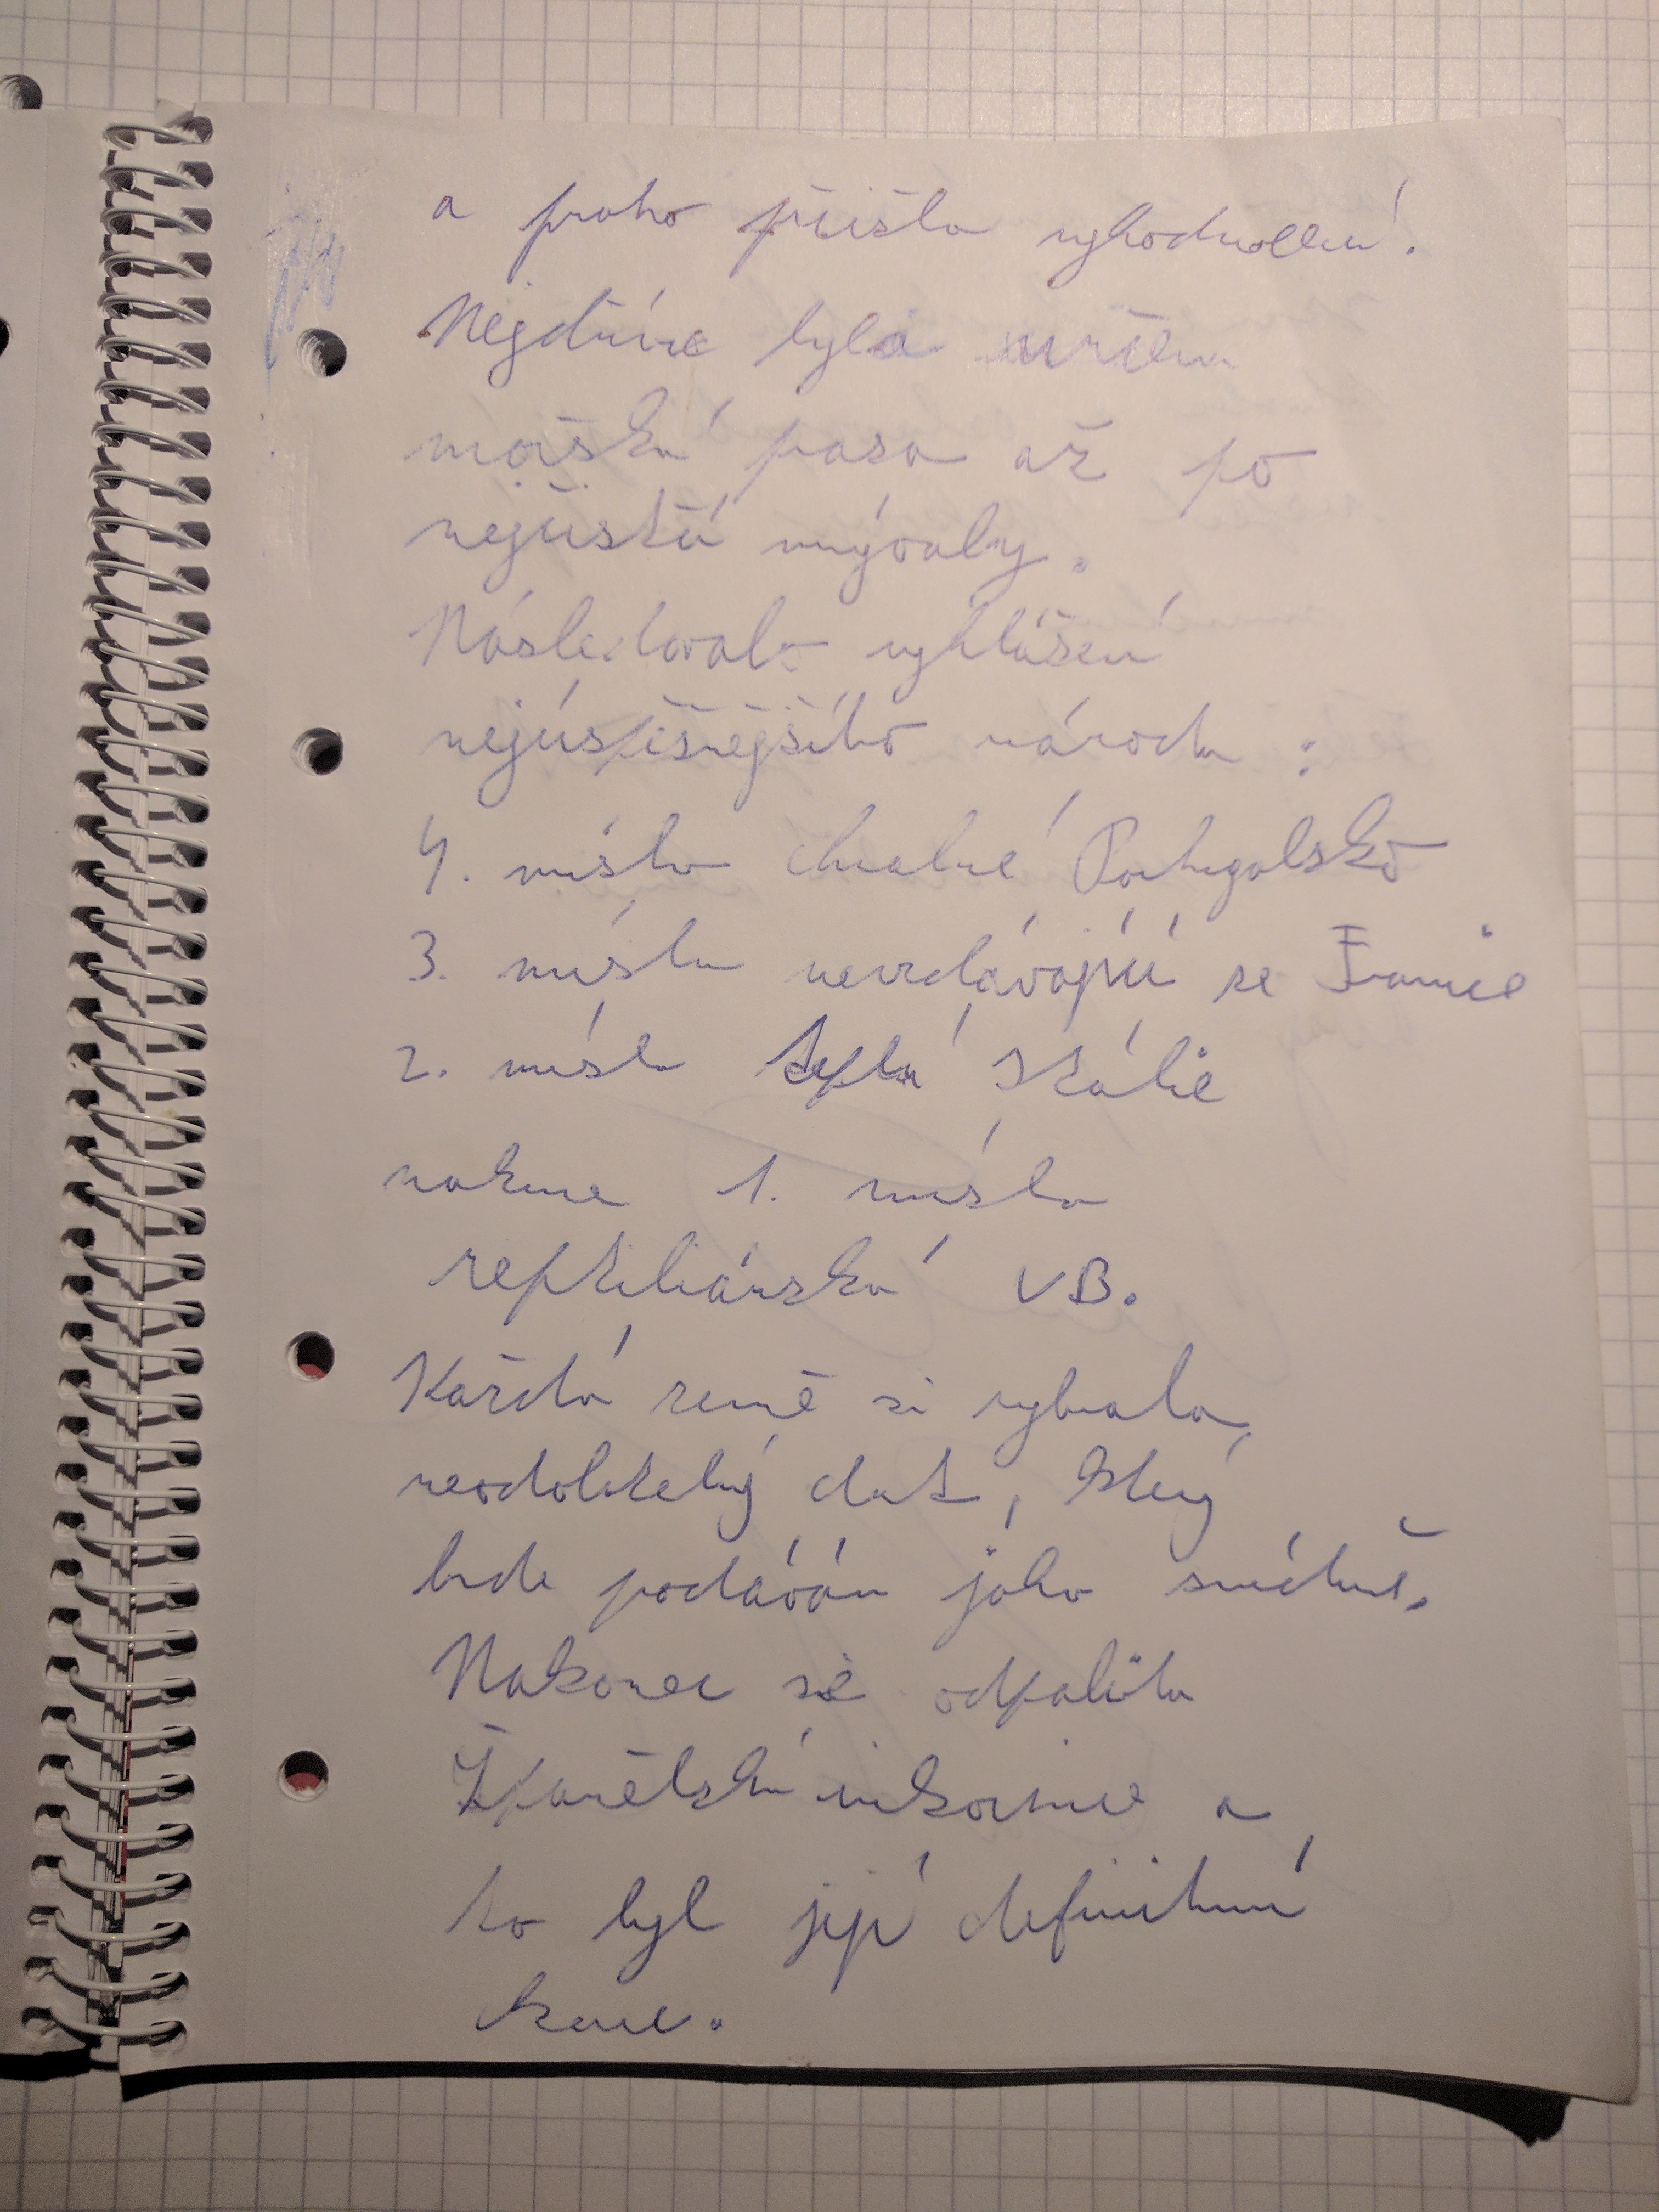 a proto přišlo vyhodnocení.
Nejdříve byla určena
mořská pasa až po
nejčistší mývaly.
Následovalo vyhlášení
nejúspěšnějšího národa :
4. místo chvalné Portugalsko
3. místo nevzdávající se Francie
2. místo teplá Itálie
1. místo
reptiliánská VB.
Každá země si vybrala
neodolatelný dort, který
bude podáván jako snídaně.
Nakonec se odpálila
Španělská inkvizice a
to byl její definitivní
konec.